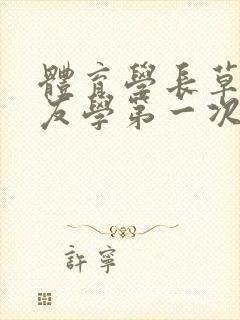 體育學長草
友學第一次
許寧